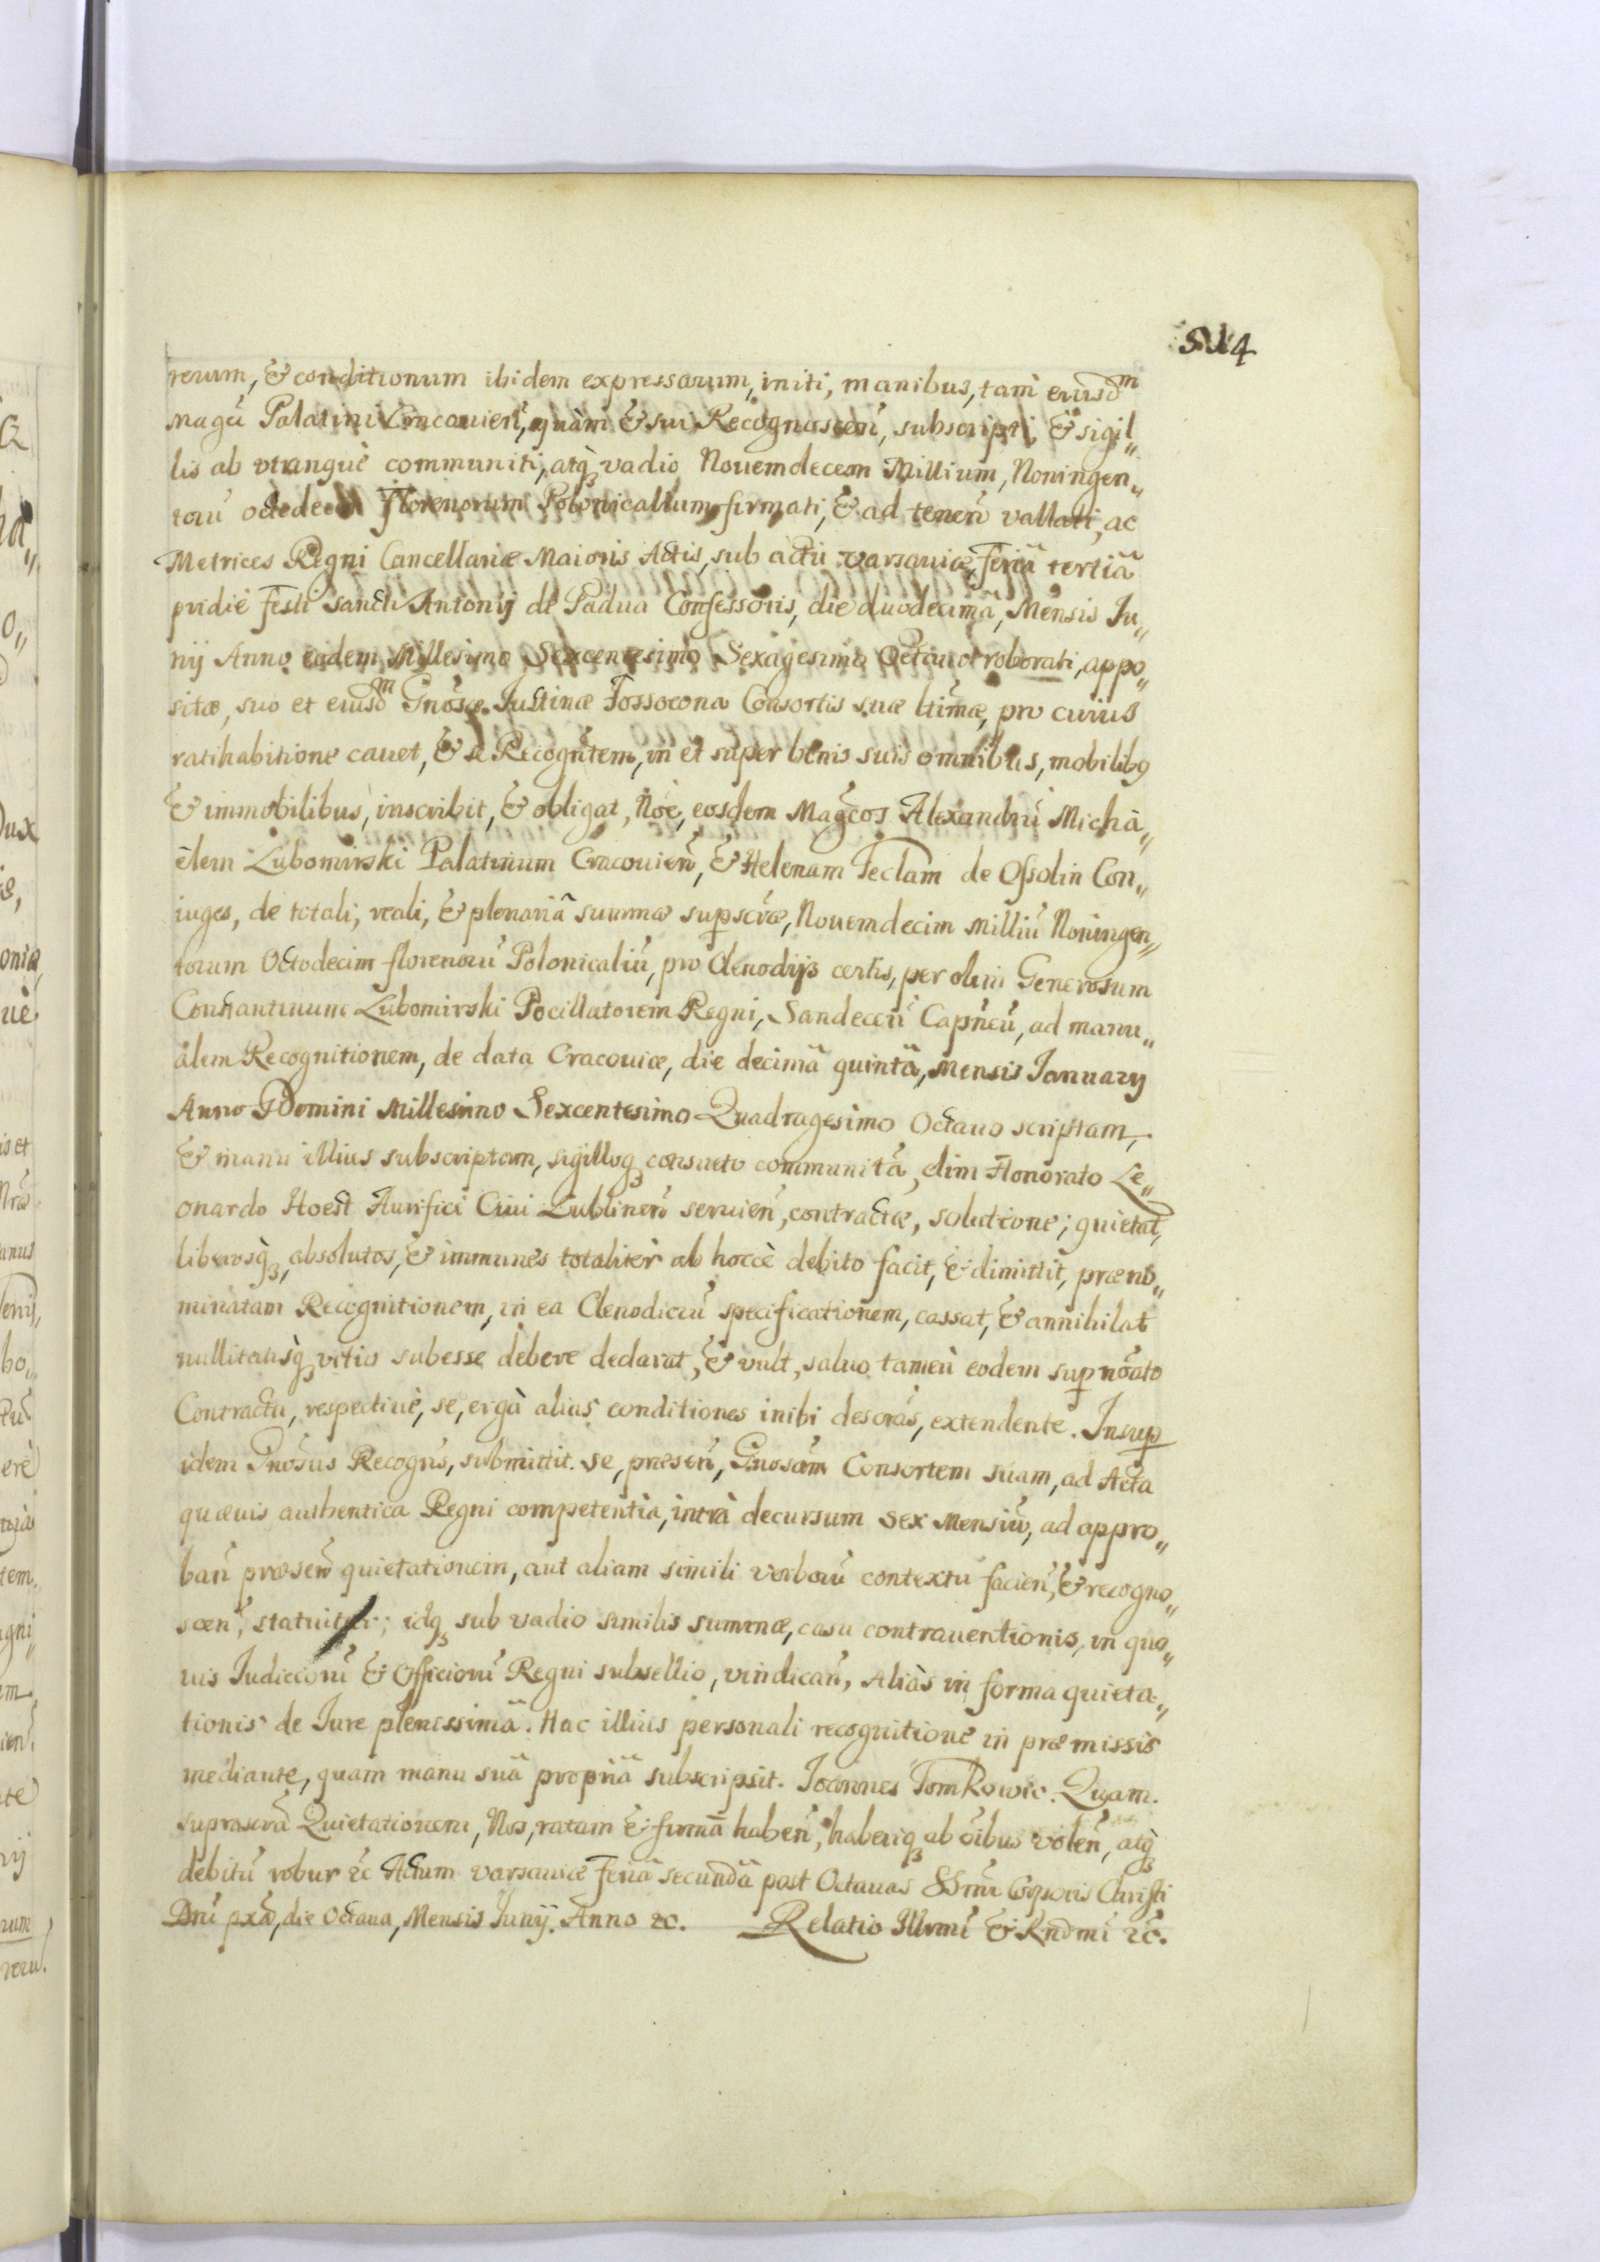 514
rerum, & conditionum ibidem expressarum, initi, manibus, tam eiusdm
Magci Palatini Cracouien, quàm & sui Recognoscen, subscripti, & sigil„
lis ab utrangue communiti, atq vadio Nouemdecem Millium, Noningen„
toru octodecim Florenorum Polonicalium firmati, & ad tenen vallati, ac
Metrices Regni Cancellariæ Maioris Actis, sub actu Varsauiæ, Feriâ tertiâ
pridie Festi Sancti Antonij de Padua Confessoris, die duodecimâ, Mensis Iu„
nij Anno eodem Millesimo Sexcentesimo Sexagesimo Octauo roborati, appo„
sitæ, suo et eiusdm Gnosæ Iustinæ Consortis suæ ltimæ, pro cuius
ratihabitione cauet, & se Recogntem, in et super bonis suis omnibus, mobilibq
& immobilibus, inscribit, & obligat, Noè, eosdem Magcos Alexandrũ Micha„
ëlem Lubomirski Palatinum Cracouieñ, & Helenam Teclam de Ossolin Con„
iuges, de totali, reali, & plenariâ summæ supscræ, Nouemdecim Milliũ Noningen„
torum Octodecim florenorũ Polonicaliũ, pro Clenodijs certis, per olim Generosum
Constantinum Lubomirski Pocillatorem Regni, Sandecen Capneũ, ad manu„
alem Recognitionem, de data Cracouiæ, die decimâ quintâ, Mensis Ianuarij
Anno Domini Millesimo Sexcentesimo Quadragesimo Octauo scriptam,
& manu illius subscriptam, sigilloq consueto communitã, olim Honorato Le„
onardo Hoest Aurifici Ciui Lublineñ seruieñ, contractæ, solutione; quietat,
liberosq, absolutos, & immunes totaliter ab hoccè debito facit, & dimittit, præno„
minatam Recognitionem, in ea Clenodiorũ specificationem, cassat, & annihilat
nullitatisq vitio subesse debere declarat, & vult, saluo tamen eodem supnoãto
Contractu, respectiuè, se, ergà alias conditiones inibi descras, extendente. Insup
idem Gnosus Recogns, submittit se, præseñ, Gnosam Consortem suam, ad Acta
quæuis authentica Regni competentia, intrà decursum sex Mensiũ, ad appro„
bañ præseñ quietationem, aut aliam simili verborũ contextu facieñ, & recogno„
sceñ, ; idq sub vadio similis summæ, casu contrauentionis, in quo„
uis Iudiciorũ & Officiorũ Regni subsellio, vindicañ, Aliàs in forma quieta„
tionis de Iure plenissimâ. Hac illius personali recognitione in præmissis
mediante, quam manu suâ propriâ subscripsit. Ioannes Tomkowic. Quam
suprascrã Quietationem, Nos, ratam & firmã habeñ, haberiq ab oĩbus voleñ, atq
debitũ robur &c Actum Varsauiæ Feriâ secundâ post Octauas SSmi Corporis Christi
Dni pxâ, die Octaua, Mensis Iunij Anno &c. Relatio Illrmi & Rndmi &c.